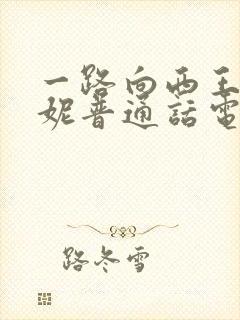 一路向西王
妮普通話電
路冬雪